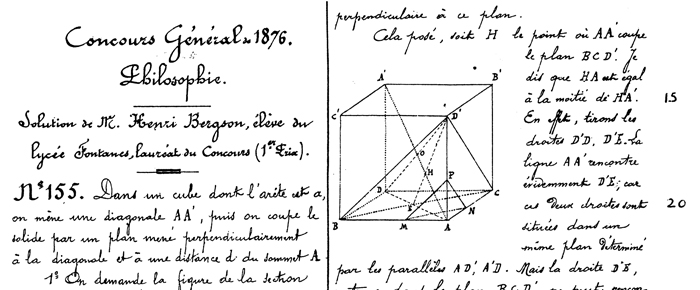 Concours Général 1876.
Philosophie.
Solution de M. Henri Bergson, élève du
lycée Fontanes, lauréat du Concours (1er Prix).
N° 155. Dans un cube dont l'arête est a,
on mène une diagonale AA', puis on coupe le
solide par un plan mené perpendiculairement
à la diagonale et à une distance d du sommet A.
1° On demande la figure de la section
perpendiculaire à ce plan.
Cela posé, soit H le point où AA' coupe
le plan BCD'. Je
dis que HA est égal
à la moitié de HA'. 15
En effet, tirons les
droites D'D, D'E. La
ligne AA' rencontre
évidemment D'E; car
ces deux droites sont 20
situées dans un
même plan déterminé
par les parallèles AD', A'D. Mais la droite D'E,
A'
B'
C'
D'
O
H
P
D
C
E
N
B
M
A